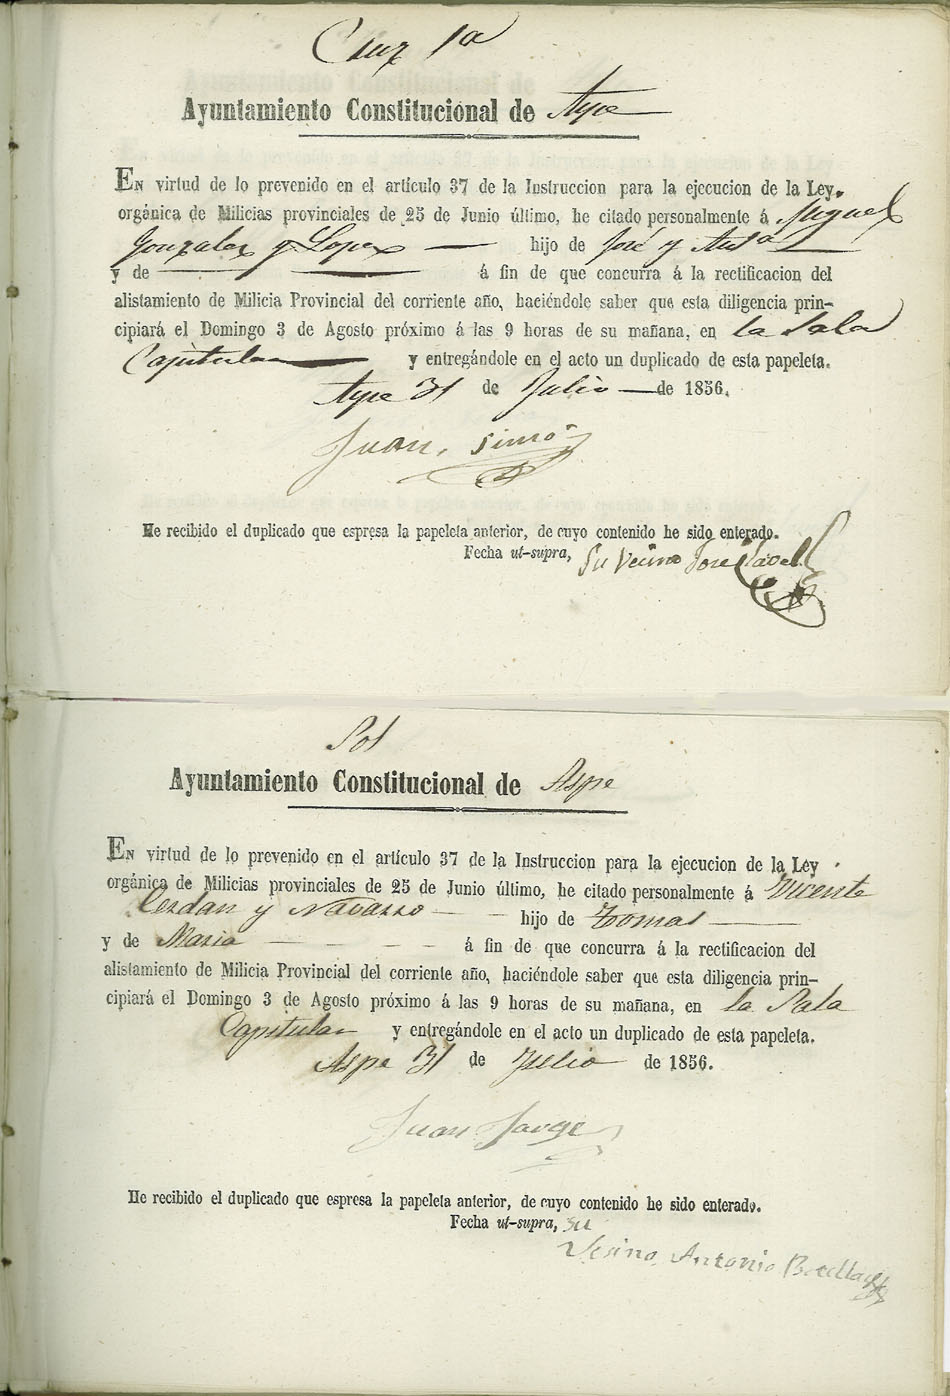 Cruz 1ª
Ayuntamiento Constitucional de Aspe
En virtud de lo prevenido en el artículo 37 de la Instruccion para la ejecucion de la Ley
orgánica de Milicias provinciales de 25 de Junio último, he citado personalmente á Miguel
Gonzalez y Lopez hijo de José y Antª
y de á fin de que concurra á la rectificacion del
alistamiento de Milicia Provincial del corriente año, haciéndole saber que esta diligencia prin-
cipiará el Domingo 3 de Agosto próximo á las 9 horas de su mañana, en la Sala
Capitular y entregándole en el acto un duplicado de esta papeleta.
Aspe 31 de Julio de 1856.
Juan Simón
He recibido el duplicado que espresa la papeleta anterior, de cuyo contenido he sido enterado.
Fecha ut-supra, Su Vecino Jose
Sol
Ayuntamiento Constitucional de Aspe
En virtud de lo prevenido en el artículo 37 de la Instruccion para la ejecucion de la Ley
orgánica de Milicias provinciales de 25 de Junio último, he citado personalmente á Vicente
Cerdan y Navarro hijo de Tomas
y de Maria á fin de que concurra á la rectificacion del
alistamiento de Milicia Provincial del corriente año, haciéndole saber que esta diligencia prin-
cipiará el Domingo 3 de Agosto próximo á las 9 horas de su mañana, en la Sala
Capitular y entregándole en el acto un duplicado de esta papeleta.
Aspe 31 de Julio de 1856.
Juan Jorge
He recibido el duplicado que espresa la papeleta anterior, de cuyo contenido he sido enterado.
Fecha ut-supra, su
Vesino Antonio Botella